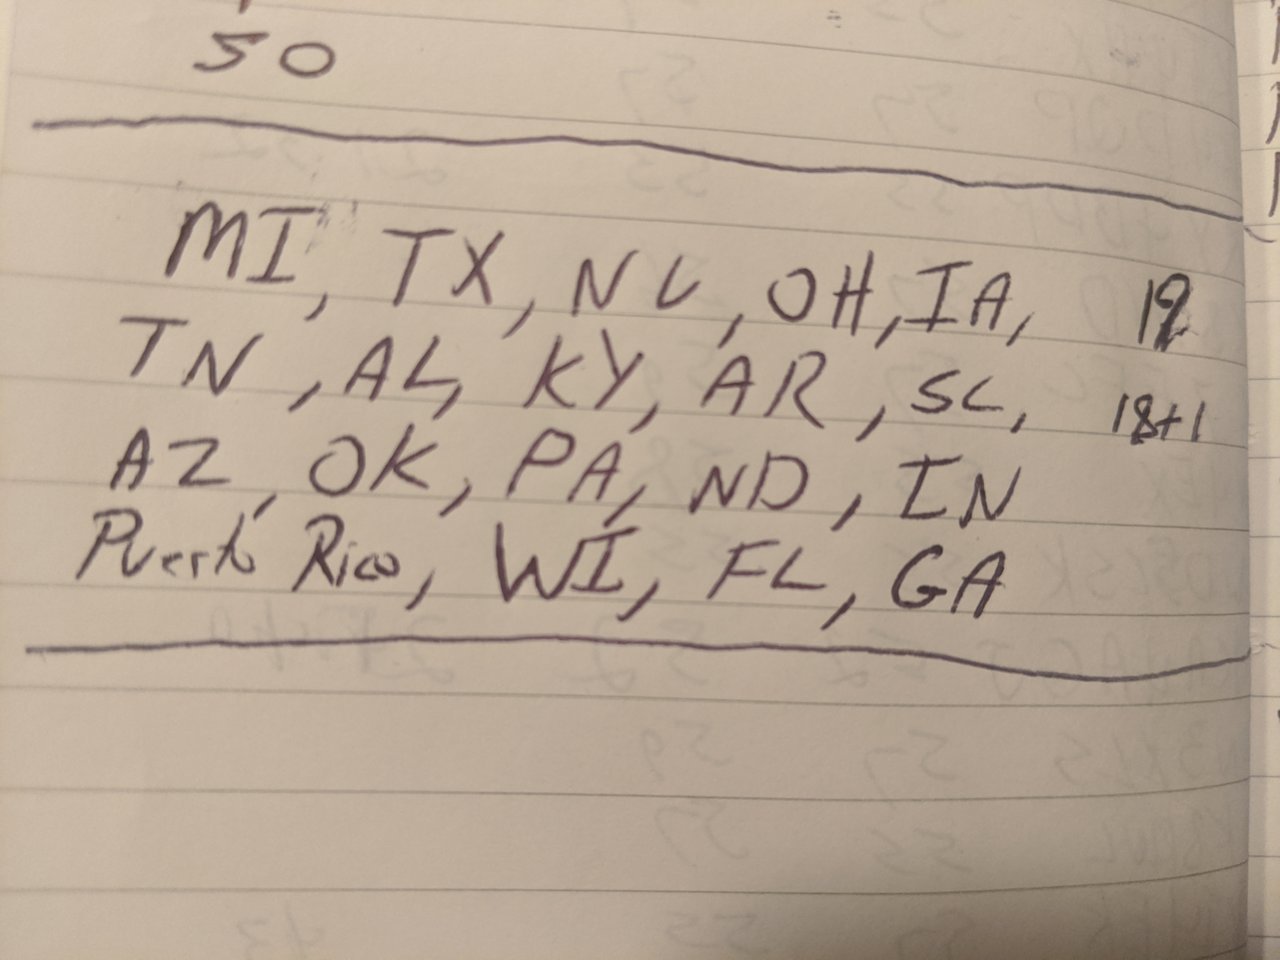 50
MI, TX, NC, OH, IA, 19
TN, AL, KY, AR, SC, 18+1
AZ, OK, PA, ND, IN
Puerto Rico, WI, FL, GA